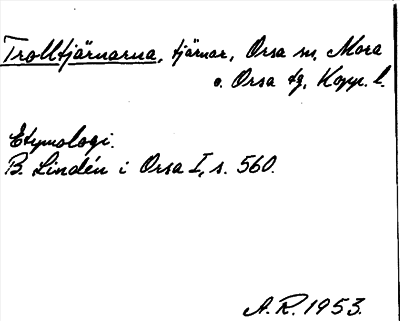 Trolltjärnarna, tjärnar, Orsa sn, Mora
o. Orsa tg, Kopp. l.
Etymologi.
B. Lindén i Orsa I, s. 560.
A. R. 1953.